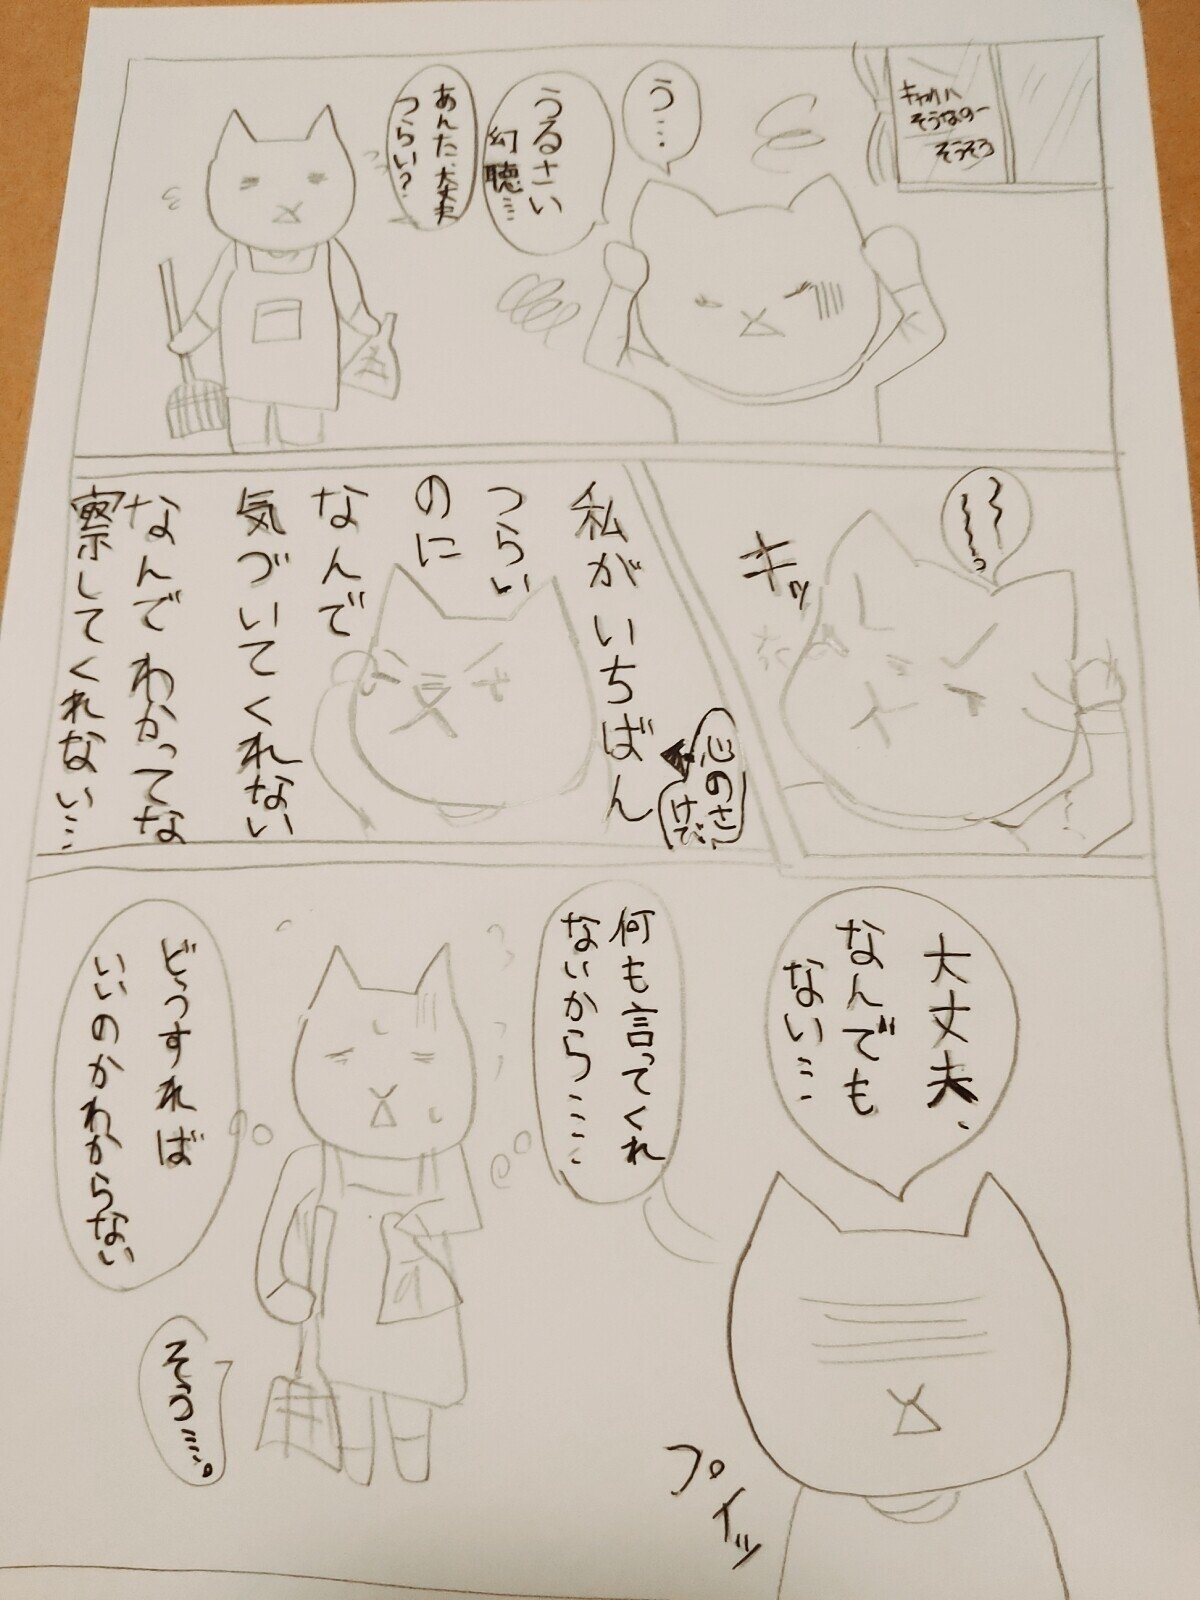 キャハハ
そうなのー
そうそう
う…
うるさい
幻聴…
あんた、大丈夫
つらい?
キッ
私がいちばん
つらい
のに
なんで
気づいてくれない
なんでわかってな
察してくれない…
心のさ
けび
大丈夫、
なんでも
ない…
プイッ
何も言ってくれ
ないから……
どうすれば
いいのかわからない
そう……。